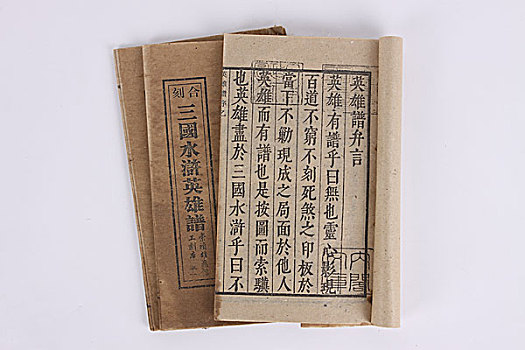 英雄譜弁言
英雄有譜乎曰無也靈心影現
百道不窮不刻死煞之印板於
當下不勦現成之局面於他人
英雄而有譜也是按圖而索驥
也英雄盡於三國水滸乎曰不
合刻
三國水滸英雄譜